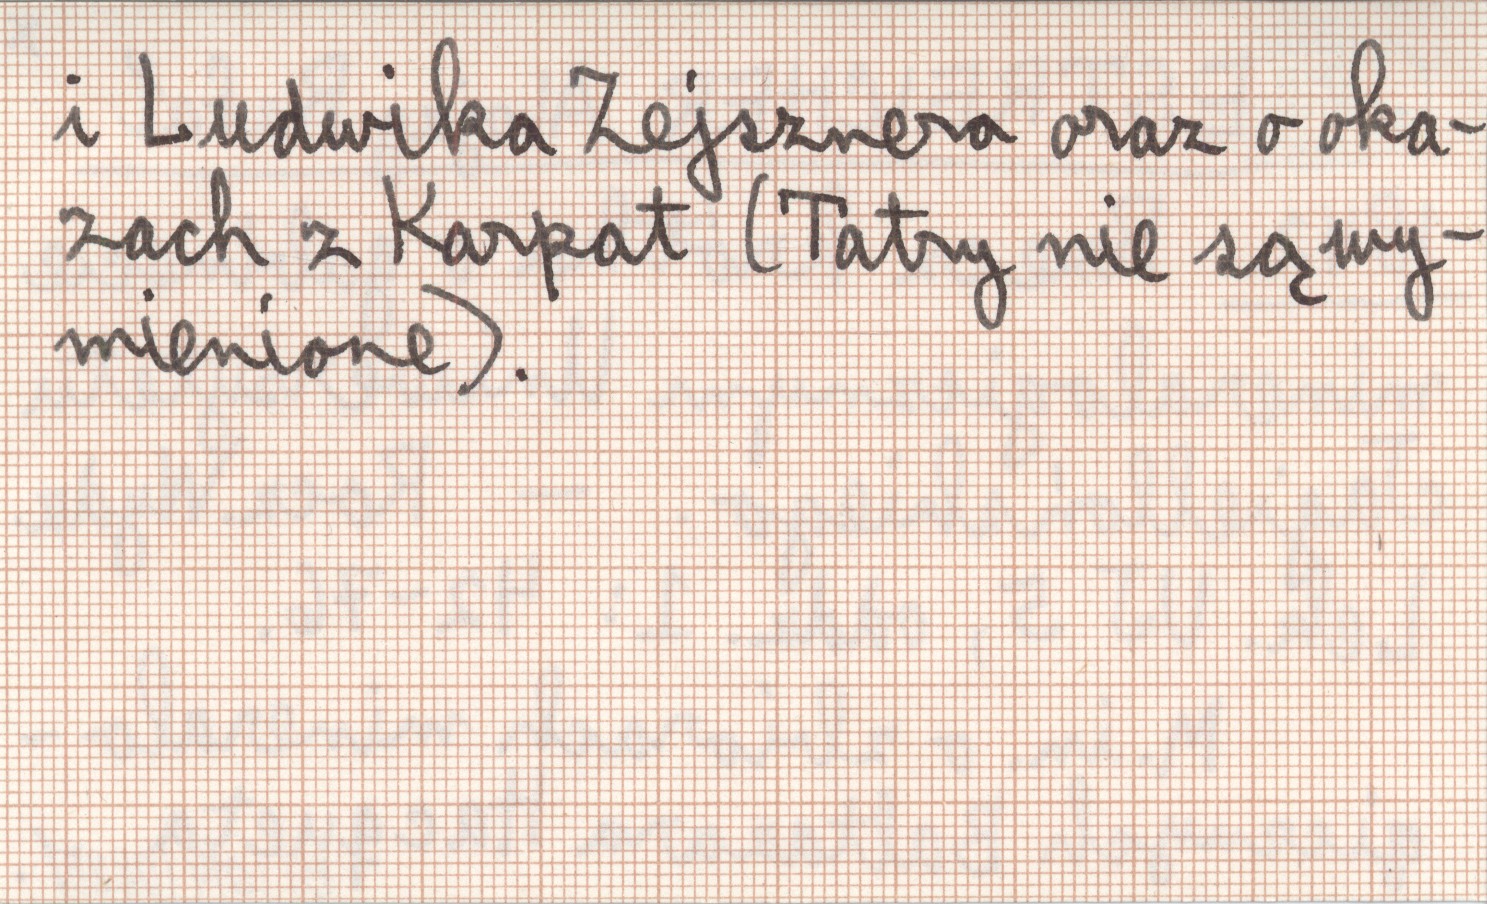 i Ludwika Zejsznera oraz o oka-
zach z Karpat (Tatry nie są wy-
mienione).